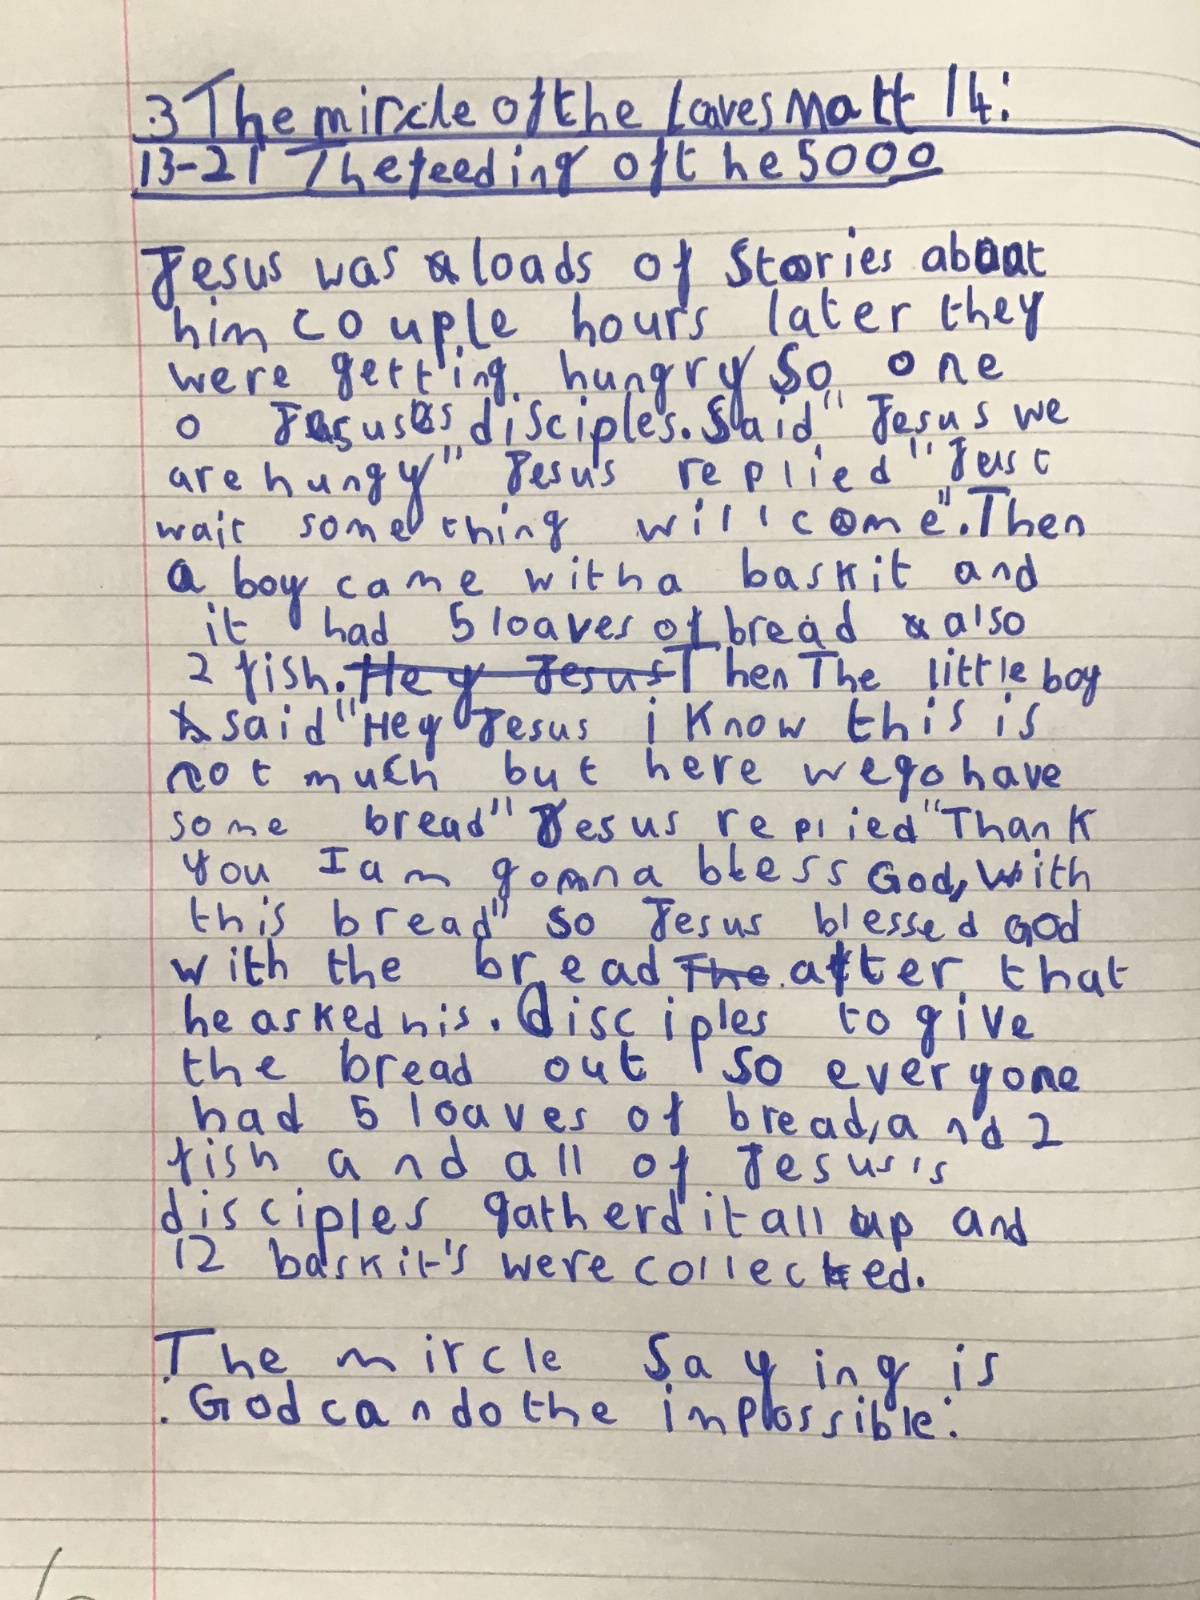 .3 The mircle of the Loaves Matt 14:
13-21 The feeding of the 5000
Jesus was a loads of Stories about
him couple hours later they
were getting hungry So one
o Jesus's disciples. Said "Jesus we
are hungy" Jesus replied "Just
wait something will come". Then
a boy came with a baskit and
it had 5 loaves of bread & also
2 fish. Hey Jesus Then The little boy
said "Hey Jesus i Know this is
not much but here we go have
some bread" Jesus replied "Thank
you I am gonna bless God, with
this bread" so Jesus blessed God
with the bread The. after that
he asked his. disciples to give
the bread out so everyone
had 5 loaves of bread, and 2
fish and all of Jesus's
disciples gatherd it all up and
12 baskit's were collected.
The mircle Saying is
. God can do the impossible.